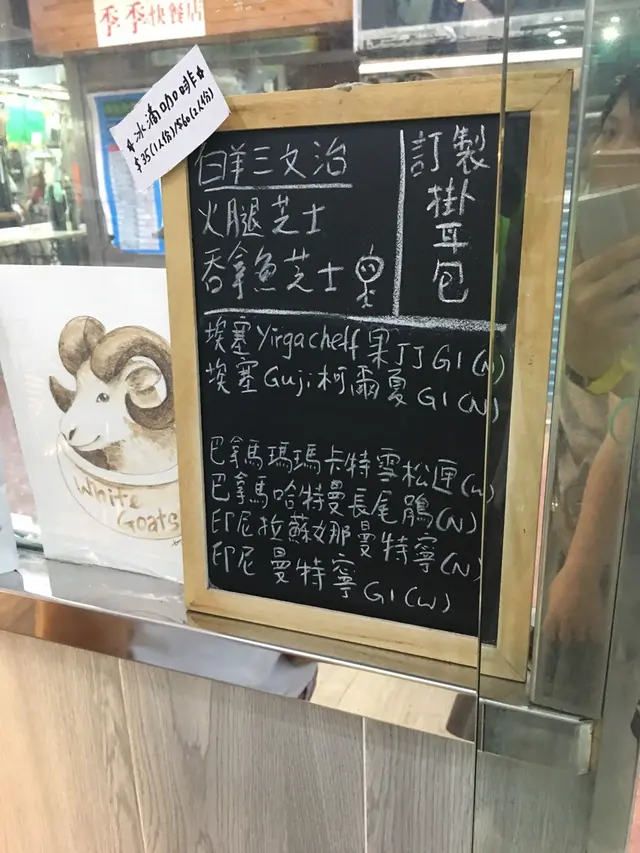 季季快餐店
★冰滴咖啡★
$35(1人份)/$60(2人份)
白羊三文治
火腿芝士
吞拿魚芝士
訂製
掛耳包
埃塞Yirgacheff果丁丁G1(N)
埃塞Guji柯爾夏G1(N)
巴拿馬瑪瑪卡特雪松匣(W)
巴拿馬哈特曼長尾鵑(N)
印尼拉蘇娜曼特寧(N)
印尼曼特寧G1(W)
White
Goats